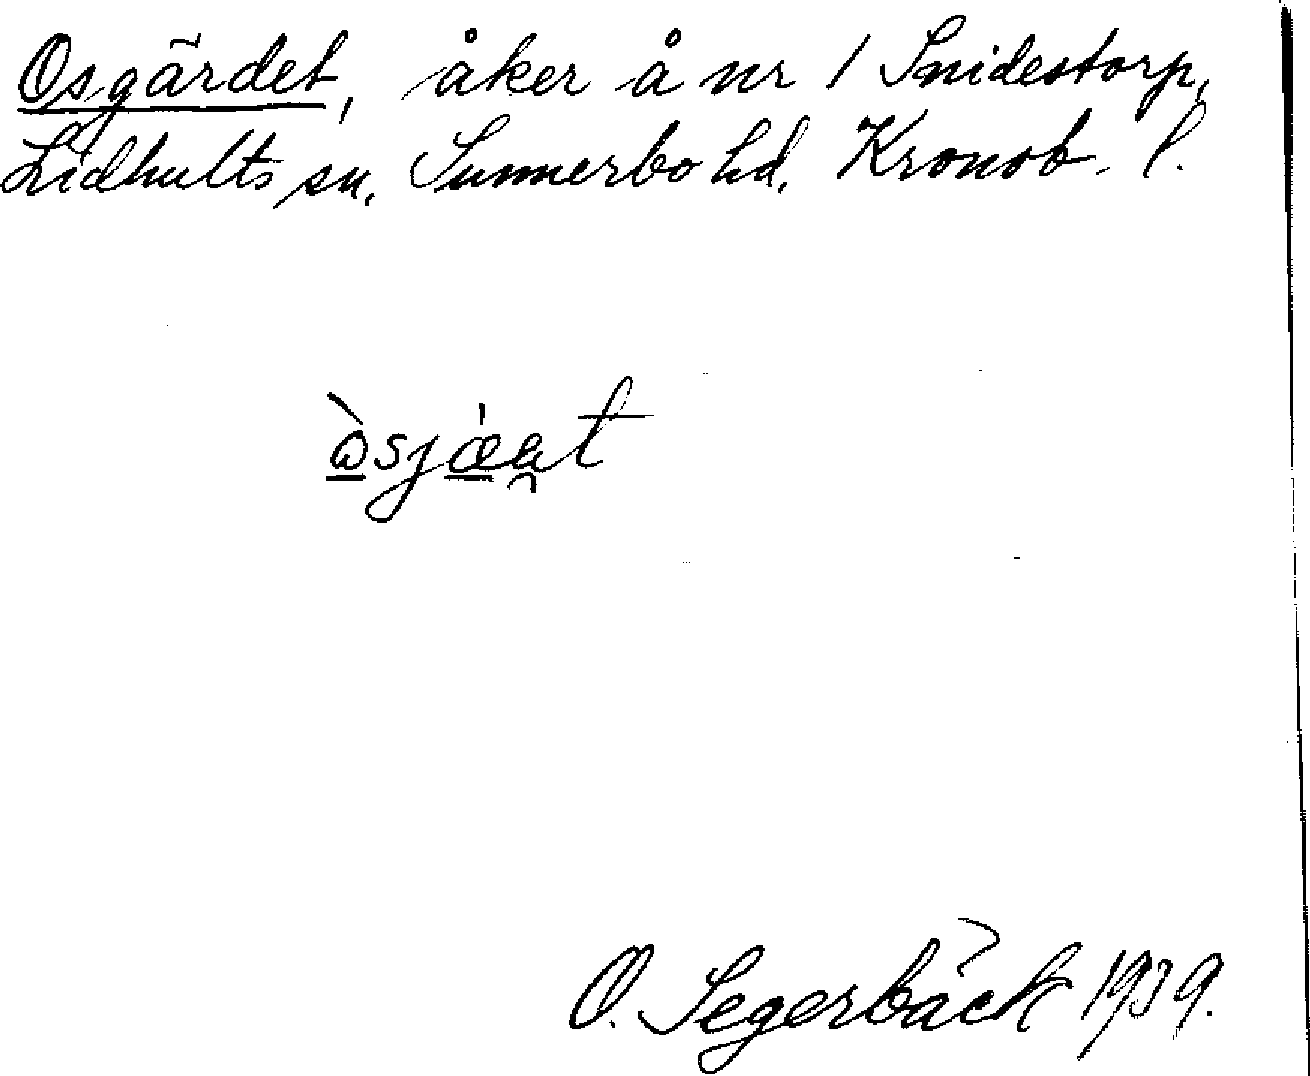 Osgärdet, åker å nr 1 Snidestorp,
Lidhults sn. Sunnerbo hd. Kronob. l.
O. Segerbäck 1939.